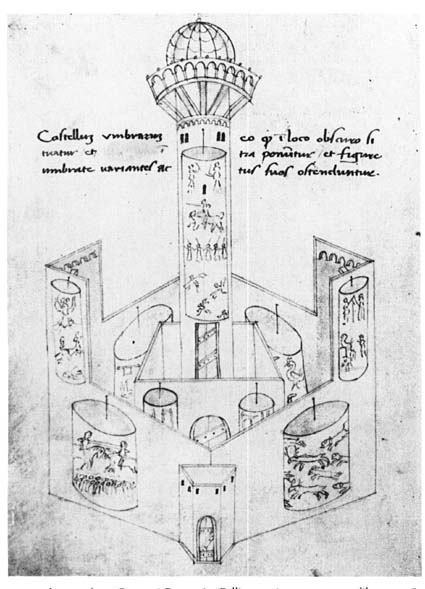 Castelluz vmbrarum eo ꝙ ī loco obscuro si
tuatur et ī tra ponūtur et figure
umbrate uariantes ac tus suos ostenduntur.